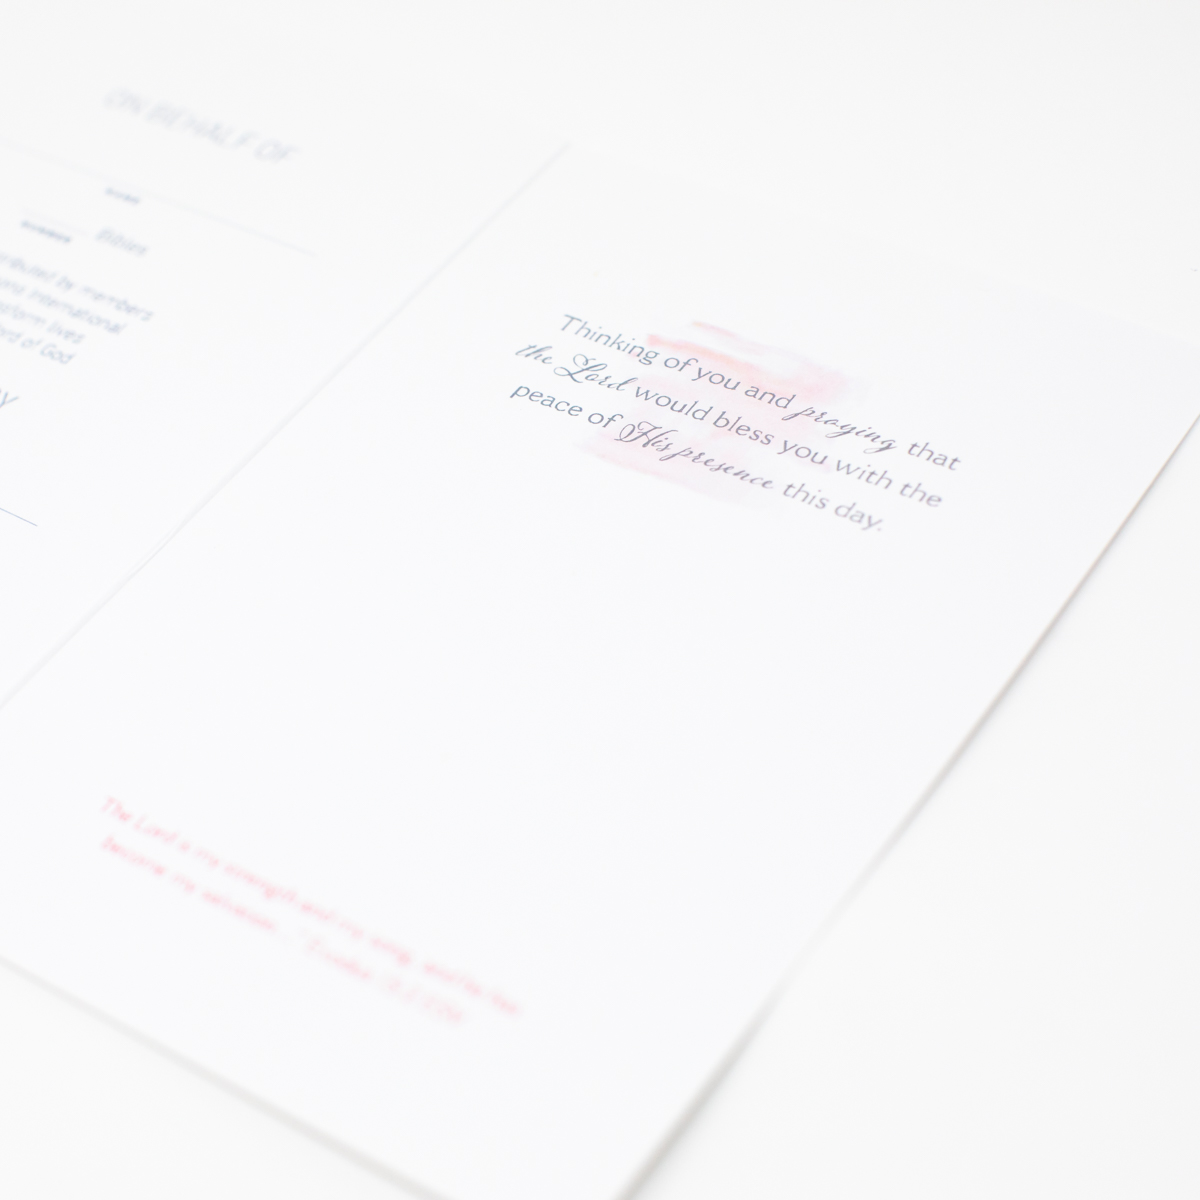 ON BEHALF OF
Bibles
by members
International
lives
of God
Thinking of you and praying that
the Lord would bless you with the
peace of His presence this day.
The Lord is my strength and my song, and He has
become my salvation. Exodus